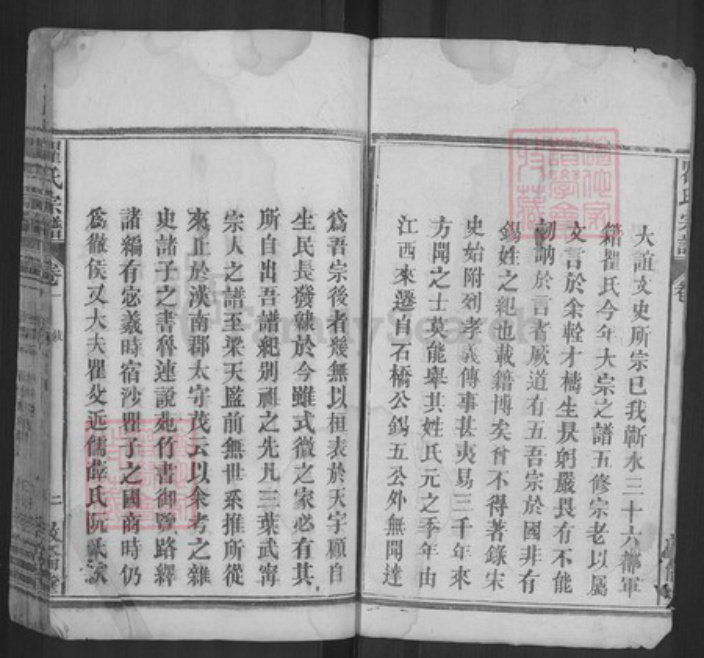 大誼文史所宗已我蘄水三十六都軍
籍瞿氏今年大宗之譜五修宗老以屬
文言於余輇才樗生夙躬嚴畏有不能
訥於言者厥道有五吾宗於國非有
錫姓之紀也載籍博矣曾不得著錄宋
史始附列孝義傳事甚夷易三千年來
方聞之士莫能舉其姓氏元之季年由
江西來遷自石橋公錫五公外無聞達
為吾宗後者幾無以桓表於天宇顧自
生民長發緜於今雖式微之家必有其
所自出吾譜紀別祖之先凡三葉武甯
宗人之譜至梁天監前無世系推所從
來止於漢南郡太守茂云以余考之雜
史諸子之書魯連說苑竹書御覽路繹
諸編有宓羲時宿沙瞿子之國商時仍
為徹侯又大夫瞿父近儒薛氏阮氏
瞿氏宗譜
卷一
敘
二
FamilySearch